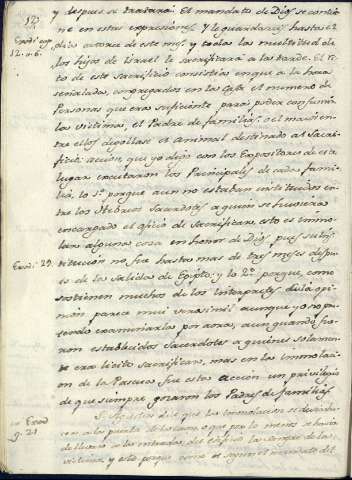 12
y despues se tratará. El mandato de Dios se contie-
ne en estas expresiones: Y le guardareis hasta el
Exod. cap. 12. v. 6.
dia catorce de este mes, y toda la multitud de
los hijos de Israel le sacrificará a la tarde. El ri-
to de este Sacrificio consistia en que a la hora
señalada, congregados en la casa el numero de
Personas que era suficiente para poder consumir
la victima, el Padre de familias o el mas en-
tre ellos degollase el animal destinado al Sacri-
ficio: accion, que yo dijo con los Expositores de este
lugar executaron los Principales de cada fami-
lia, lo 1.º porque aun no estaban instituidos en-
tre los Hebreos Sacerdotes a quien se huviera
encargado el oficio de Sacrificar, esto es inmo-
lar alguna cosa en honor de Dios, pues su ins-
Exod. 29.
titucion no fue hasta mas de tres meses despu-
es de la salida de Egipto: y lo 2.º porque, como
sostienen muchos de los Interpretes, cuya opi-
nion parece mui verosimil aunque yo no pre-
tendo examinarla por aora, aun quando fue-
ron establecidos Sacerdotes a quienes solamen-
te era licito sacrificar, mas en la inmolaci-
on de la Pascua fue esta accion un privilegio
de que siempre gozaron los Padres de familias.
in Exod
q. 21
que la inmolacion se
a la puerta de la casa, o que por lo menos se havia
de llevar a las entradas del edificio la sangre de la
victima, y esto porque como se siguió el mandato del